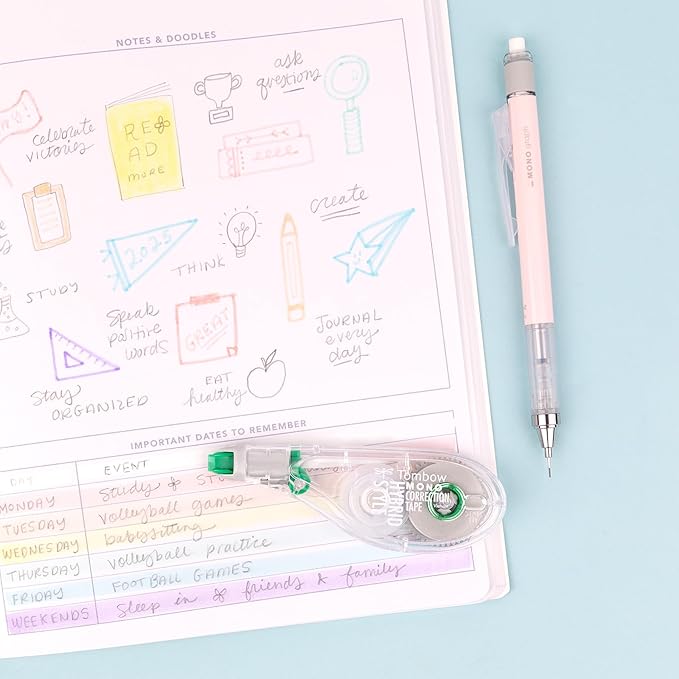 NOTES & DOODLES
ask
questions
celebrate
victories
READ
MORE
create
2025
THINK
STUDY
Speak
positive
words
GREAT
JOURNAL
every
day
EAT
healthy
Stay
ORGANIZED
MONO graph
IMPORTANT DATES TO REMEMBER
DAY EVENT
MONDAY Study &
TUESDAY Volleyball games
WEDNESDAY babysitting
THURSDAY Volleyball practice
FRIDAY FOOTBALL GAMES
WEEKENDS Sleep in & friends & family
Tombow
MONO
HYBRID
STYLE
CORRECTION
TAPE